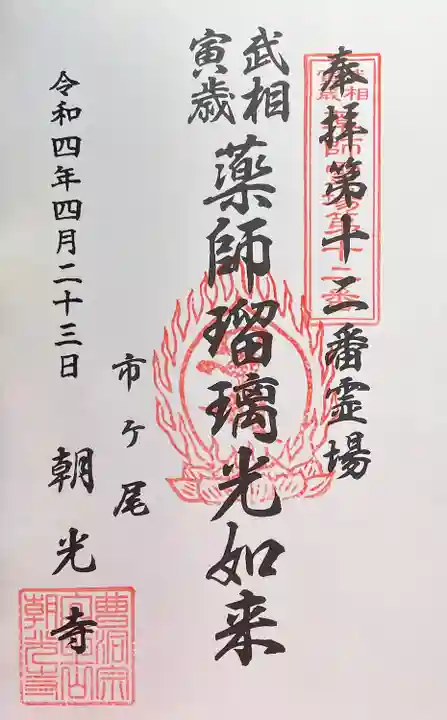 奉拝第十二番霊場
武相
寅歳
薬師瑠璃光如来
市ケ尾
朝光寺
令和四年四月二十三日
武相
寅歳
薬師霊場第十二番
曹洞宗
朝光寺